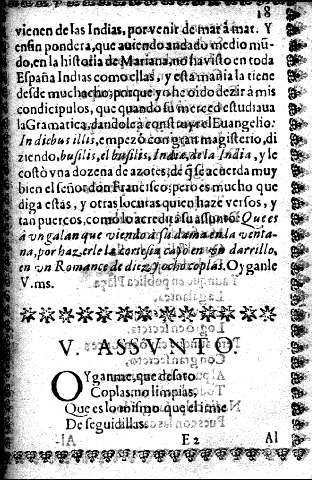 18
vienen de las Indias, por venir de mar à mar. Y
en fin pondera, que auiendo andado medio mũ-
do, en la historia de Mariana, no ha visto en toda
España Indias como ellas, y esta mania la tiene
desde muchacho; porque yo he oido dezir à mis
condicipulos, que quando su merced estudiaua
la Gramatica, dandole à construyr el Euangelio:
In diebus illis, empezò con gran magisterio, di
ziendo, busilis, el busilis, Indiæ, de la India, y le
costò vna dozena de azotes, de q̃ se acuerda muy
bien el señor don Francisco; pero es mucho que
diga estas, y otras locuras quien haze versos, y
tan puercos, como lo acredita su assunto. Que es
à vn galan que viendo à su dama en la venta-
na, por hazerle la cortesia cayò en vn darrillo,
en vn Romance de diez y ocho coplas. Oyganle
V.ms.
V. ASSVNTO.
OYganme, que desato
Coplas, no limpias,
Que es lo mismo que el irme
De seguidillas.
-Al- E2 Al